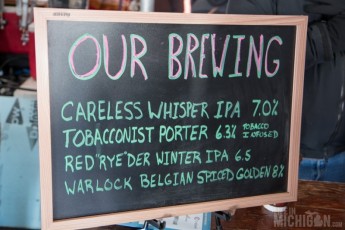 OUR BREWING
CARELESS WHISPER IPA 7.0%
TOBACCONIST PORTER 6.3% TOBACCO INFUSED
RED "RYE" DER WINTER IPA 6.5
WARLOCK BELGIAN SPICED GOLDEN 8%